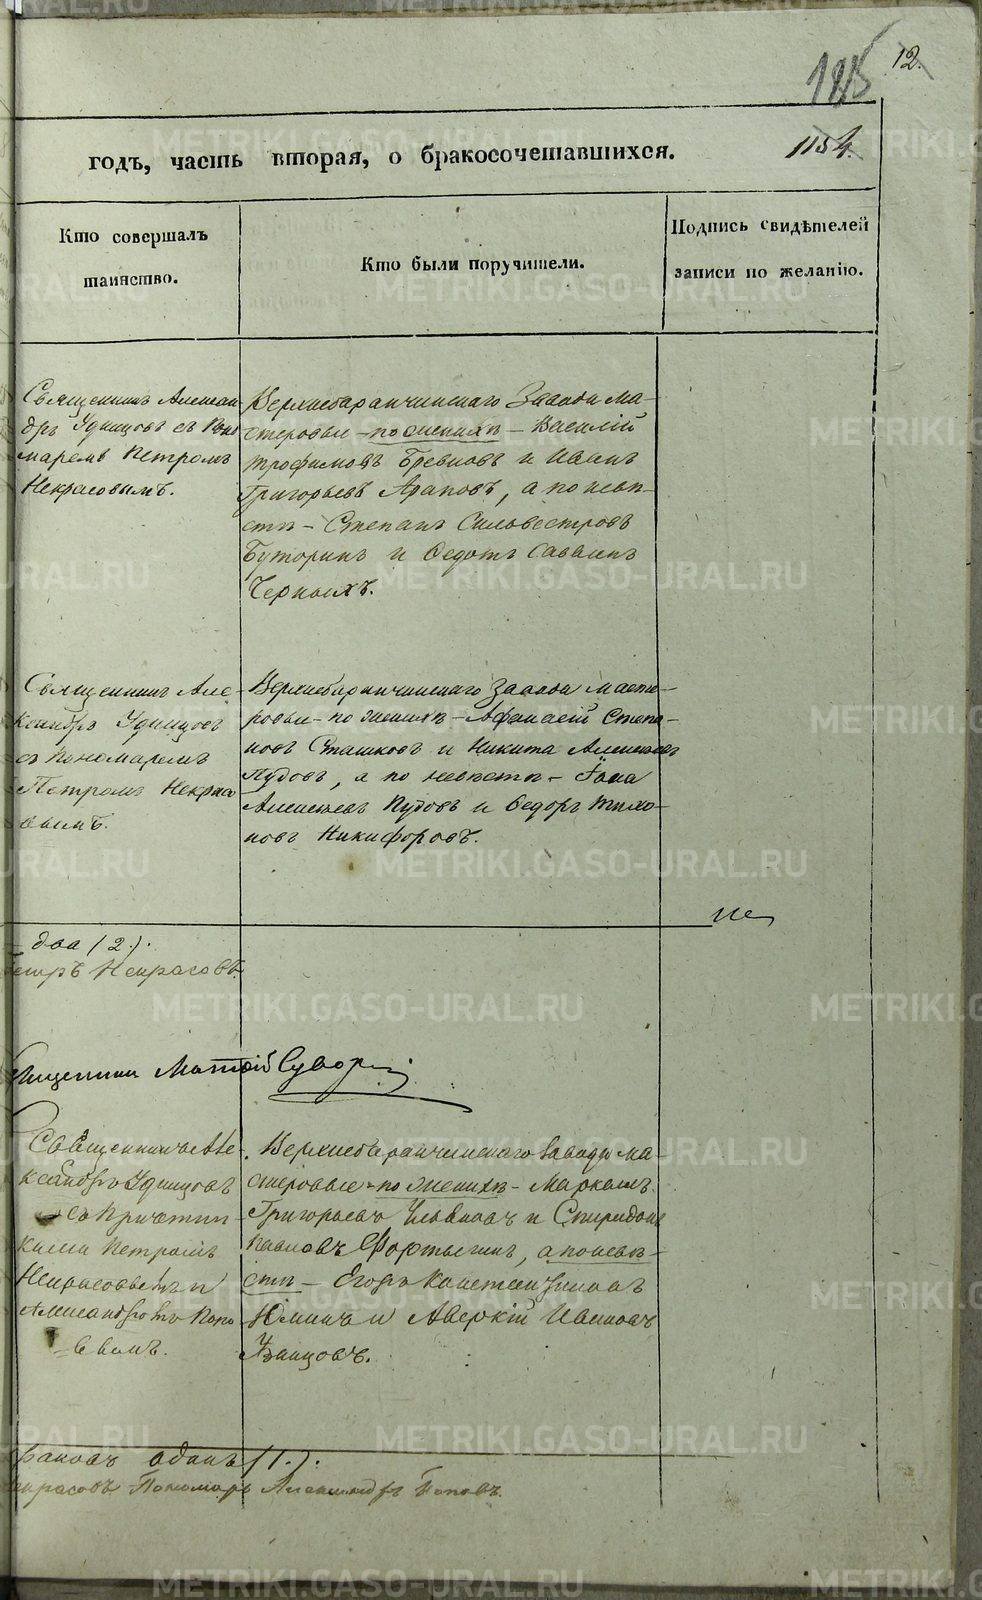 12.
годъ, часть вторая, о бракосочетавшихся.
1154.
Кто совершалъ
таинство.
Кто были поручители.
Подпись свидѣтелей
записи по желанію.
Священникъ Алексан
дръ Удинцовъ съ Поно
маремъ Петромъ
Некрасовымъ.
Верхнебаранчинскаго Завода ма-
стеровые - по женихѣ - Василій
Трофимовъ Бревновъ и Иванъ
Григорьевъ Араповъ, а по невѣ-
стѣ - Степанъ Сильвестровъ
Буторинъ и Федотъ Саввинъ
Черныхъ.
Священникъ Але-
ксандръ Удинцовъ
съ Пономаремъ
Петромъ Некрасо
вымъ.
Верхнебаранчинскаго Завода масте-
ровые - по женихѣ - Афанасій Степа-
новъ Сташковъ и Никита Алексѣевъ
Пудовъ, а по невѣстѣ - Иона
Алексѣевъ Пудовъ и Федоръ Тихо
новъ Никифоровъ.
два (2.).
Петръ Некрасовъ.
Матѳій Сувор
Священникъ Але-
ксандръ Удинцовъ
съ Причетни
ками Петромъ
Некрасовымъ и
Александромъ Попо
вымъ.
Верхнебаранчинскаго Завода ма-
стеровые - по женихѣ - Маркелъ
Григорьевъ и Спиридонъ
Павловъ Фортыгинъ, а по невѣ-
стѣ - Егоръ Константиновъ
Юминъ и Аверкій Ивановъ
Удинцовъ.
браковъ одинъ (1.).
Некрасовъ Пономарь Александръ Поповъ.
METRIKI.GASO-URAL.RU